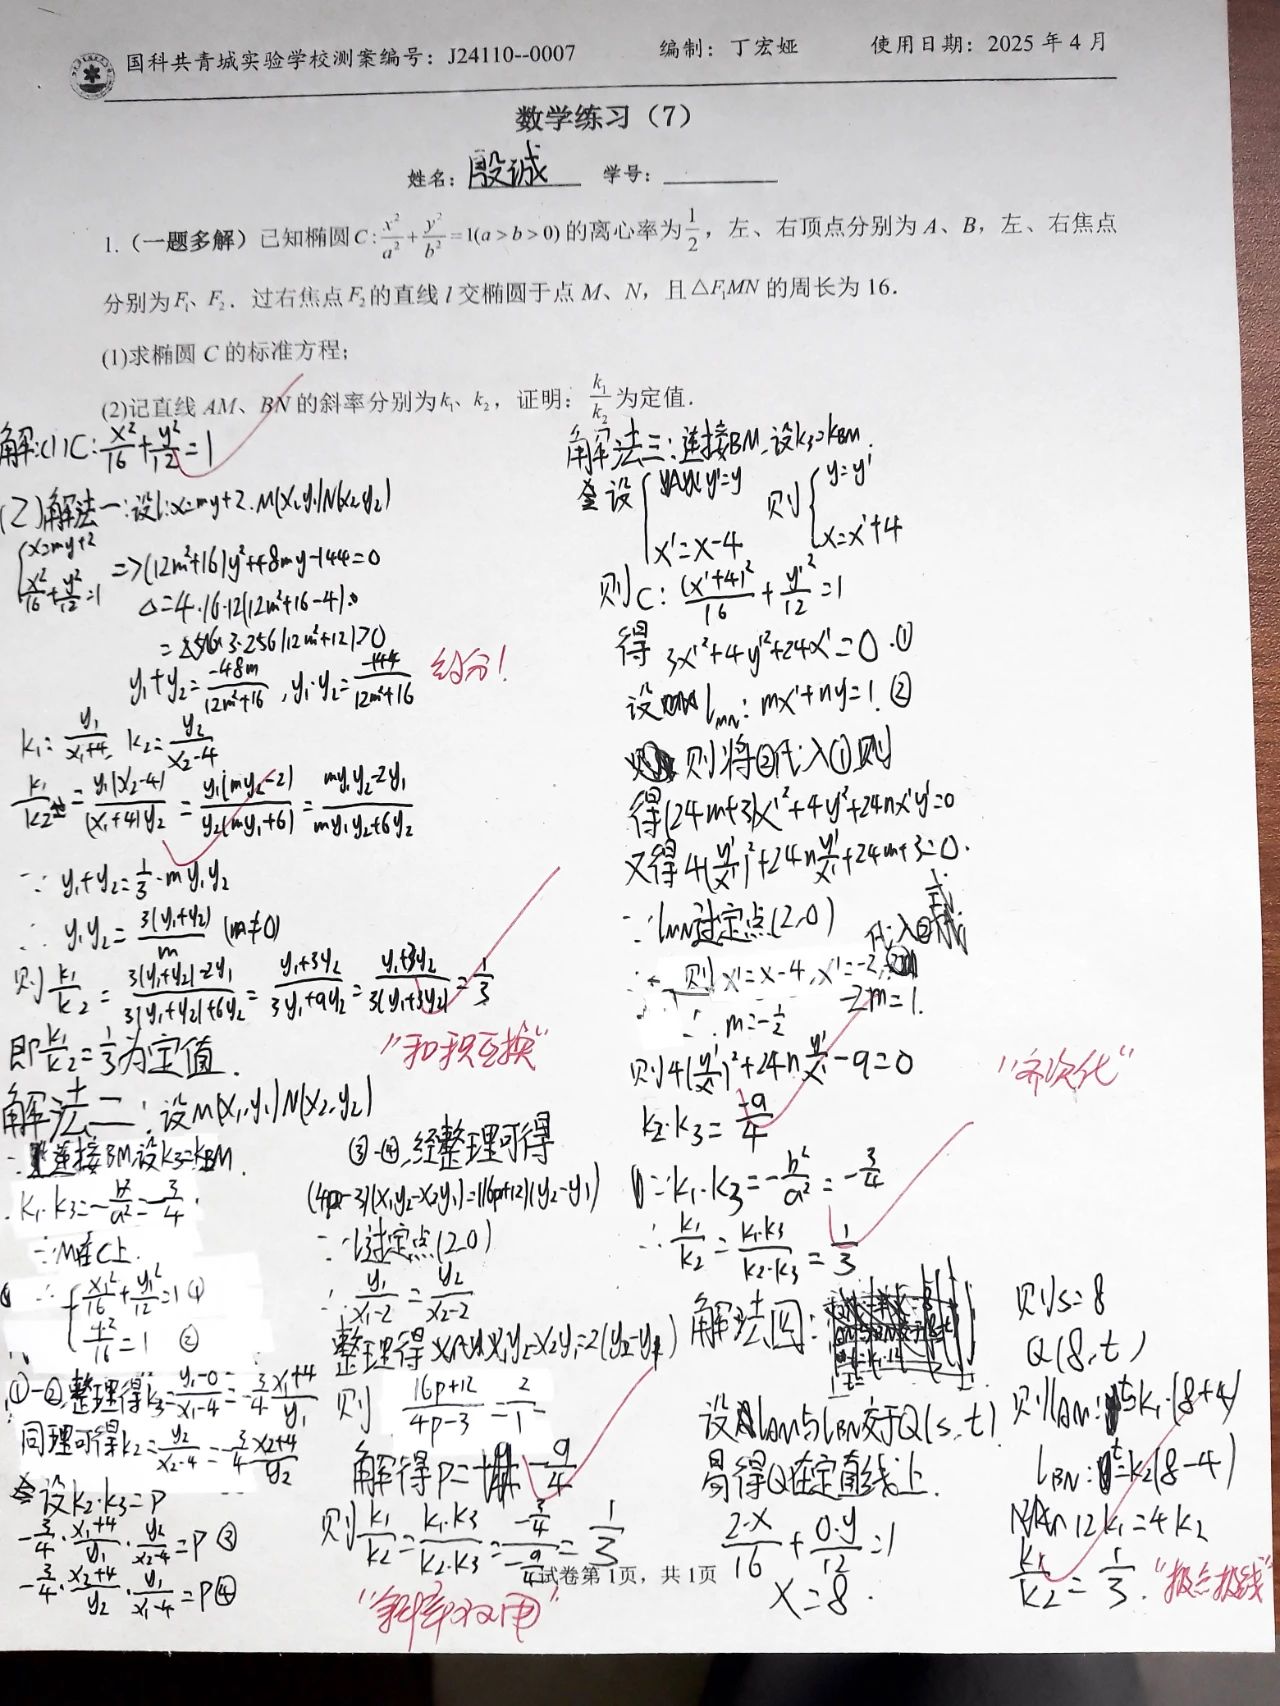 国科共青城实验学校测案编号：J24110--0007 编制：丁宏娅 使用日期：2025 年 4 月
数学练习（7）
姓名：殷诚 学号：
1.（一题多解）已知椭圆 C：x²/a² + y²/b² = 1(a > b > 0) 的离心率为 1/2，左、右顶点分别为 A、B，左、右焦点
分别为 F₁、F₂．过右焦点 F₂ 的直线 l 交椭圆于点 M、N，且 △F₁MN 的周长为 16．
(1)求椭圆 C 的标准方程；
(2)记直线 AM、BN 的斜率分别为 k₁、k₂，证明：k₁/k₂ 为定值．
解:(1) C: x²/16 + y²/12 = 1
(2)解法一:设l:x=my+2.M(x₁,y₁)N(x₂,y₂)
{x=my+2
x²/16 + y²/12 = 1 => (12m²+16)y²+48my-144=0
Δ=4·16·12(12m²+16-4)
=3·256(12m²+12)>0
y₁+y₂=-48m/(12m²+16), y₁·y₂=-144/(12m²+16)
约分!
k₁=y₁/(x₁+4), k₂=y₂/(x₂-4)
k₁/k₂=y₁(x₂-4)/(x₁+4)y₂=y₁(my₂-2)/y₂(my₁+6)=(my₁y₂-2y₁)/(my₁y₂+6y₂)
∵ y₁+y₂=1/3·my₁y₂
∴ y₁y₂=3(y₁+y₂)/m (m≠0)
则k₁/k₂=(3(y₁+y₂)-2y₁)/(3(y₁+y₂)+6y₂)=(y₁+3y₂)/(3y₁+9y₂)=(y₁+3y₂)/3(y₁+3y₂)=1/3
即k₁/k₂=1/3为定值.
"和积互换"
解法二:设M(x₁,y₁)N(x₂,y₂)
连接BM,设k₃=kBM.
k₁·k₃=-b²/a²=-3/4
∵M在C上.
∴{x₁²/16+y₁²/12=1 ①
4²/16=1 ②
①-②,整理得k₃=(y₁-0)/(x₁-4)=-3/4·(x₁+4)/y₁
同理可得k₂=y₂/(x₂-4)=-3/4·(x₂+4)/y₂
设k₂·k₃=p
-3/4·(x₁+4)/y₁·y₂/(x₂-4)=p ③
-3/4·(x₂+4)/y₂·y₁/(x₁-4)=p ④
③-④,经整理可得
(4p-3)(x₁y₂-x₂y₁)=(16p+12)(y₂-y₁)
∵l过定点(2,0)
∴y₁/(x₁-2)=y₂/(x₂-2)
整理得x₁y₂-x₂y₁=2(y₂-y₁)
则(16p+12)/(4p-3)=2/1
解得p=-9/4
则k₁/k₂=k₁·k₃/k₂·k₃=(-3/4)/(-9/4)=1/3
试卷第 1页，共 1页
"斜率双用"
解法三:连接BM,设k₃=kBM.
设{y'=y
x'=x-4
则{y=y'
x=x'+4
则C:(x'+4)²/16+y'²/12=1
得3x'²+4y'²+24x'=0.①
设lMN:mx'+ny=1.②
则将②代入①则
得(24m+3)x'²+4y'²+24nx'y'=0
又得4(y'/x')²+24n y'/x'+24m+3=0.
∵lMN过定点(2,0)
则x'=x-4,x'=-2,代入②式
-2m=1.
∴m=-1/2
则4(y'/x')²+24n y'/x'-9=0
"齐次化"
k₂·k₃=-9/4
∵k₁·k₃=-b²/a²=-3/4
∴k₁/k₂=k₁·k₃/k₂·k₃=1/3
解法四:
设lAM与lBN交于Q(s,t)
易得Q在定直线上.
2·x/16+0·y/12=1
x=8.
则s=8
Q(8,t)
则lAM:t=k₁·(8+4)
lBN:t=k₂(8-4)
12k₁=4k₂
k₁/k₂=1/3.
"极点极线"